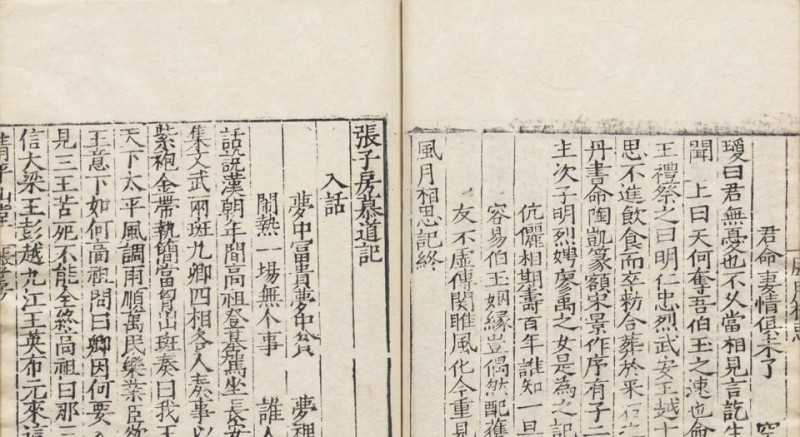 風月相思
君命妻情俱未了 空
瓊曰君無憂也不久當相見言訖生
聞 上曰天何奪吾伯玉之速也命
王禮祭之曰明仁忠烈武安王越十
思不進飲食而卒勑合葬於采石
丹書命陶凱篆額宋景作序有子二
主次子明烈娉廖禹之女是為之記
伉儷相期壽百年誰知一旦
容易伯玉姻緣豈偶然配獲
友不虛傳関睢風化今重見
風月相思記終
張子房慕道記
入話
夢中富貴夢中貧 夢裡
鬧熱一場無个事 誰人
話說漢朝年間高祖登基駕坐長安
集文武兩班九卿四相各人奏事以
紫袍金帶執簡當胷出班奏曰我王
天下太平風調雨順萬民樂業臣欲
王意下如何高祖問曰卿因何要
見三王苦死不能全終高祖曰那三
信大梁王彭越九江王英布元來這
清平山堂 張子房